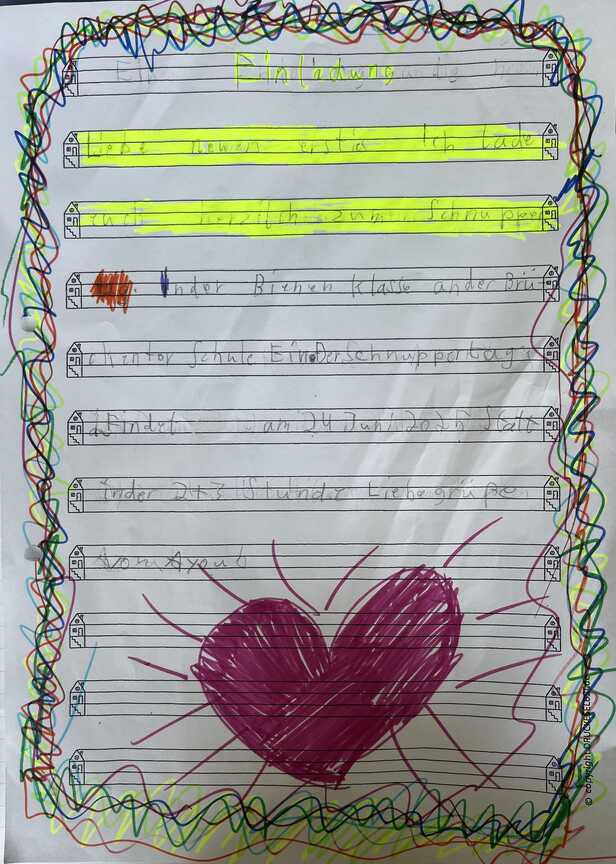 Einladung
Liebe neuen erstis Ich lade
euch herzlich zum Schnuppern
Inder Bienen Klasse ander Brü-
ckentor Schule Ein Der Schnuppertag
Findet am 24 Juni 2025 Statt
Inder 2+3 Stunde Liebe grüße
vom Ayoub
© copyright